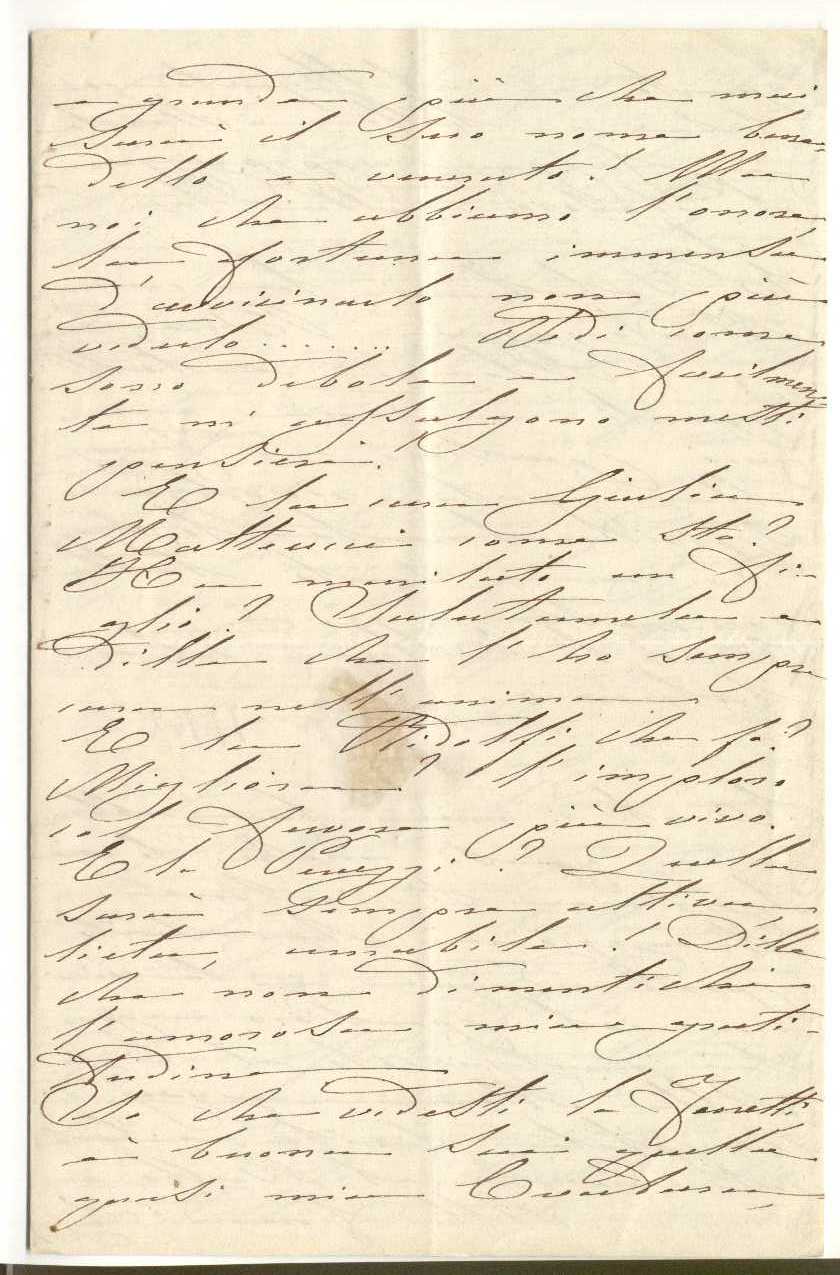 e grande più che mai
sarà il suo nome bene-
detto e venerato! Ma
noi che abbiamo l'onore,
la fortuna immensa
d'avvicinarlo non più
vederlo........ Vedi come
sono debole e facilmen-
te mi assalgono mesti
pensieri.
E la cara Giulia
Matteucci come sta?
Ha maritato un fi-
glio? Salutamela e
dille che l'ho sempre
cara nell'anima
E la Ridolfi che fa?
Migliora? l'imploro
col fervore più vivo.
E la Peruzzi? Quella
sarà sempre attiva,
lieta, amabile! Dille
che non dimentichi
l'amorosa mia grati-
tudine
So che vedesti la Zanetti
è buona sai quella
quasi mia